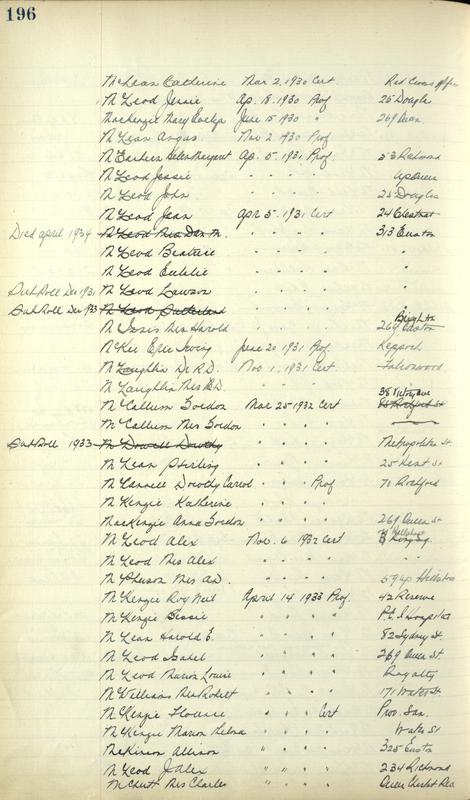 196
McLean Catherine Mar 2, 1930 Cert Red Cross Office
McLeod Jessie Ap. 18, 1930 Prof 25 Douglas
MacKenzie Mary Evelyn June 15 1930 " 269 Queen
McLean Angus Nov 2 1930 Prof
McEachern Helen Margaret Ap. 5, 1931 Prof. 53 Richmond
McLeod Jessie " " " " Up Queen
McLeod John " " " " 25 Douglas
McLeod Jean Apr 5, 1931 Cert 24 Chestnut
Died April 1934 McLeod Mrs Dan M. " " " " 313 Euston
McLeod Beatrice " " " " "
McLeod Euphlie " " " " "
Sub Roll Dec 1931 McLeod Lawson " " " " "
Sub Roll Dec 1933 McLeod Sutherland " " " "
McInnis Mrs Harold " " " " 269 Euston Brighton
McKee Eric Irving June 20 1931 Prof. Keppoch
McLaughlin Dr R.D. Nov 1, 1931 Cert. Falconwood
McLaughlin Mrs R.D. " " " "
McCallum Gordon Mar 25 1932 Cert 38 Victory Ave
McCallum Mrs Gordon " " " "
Sub Roll 1933 McDowell Dorothy " " " " Metropolitan St
McLean Stirling " " " " 25 Kent St
McCannell Dorothy Carrol " " " Prof 70 Rochford
McKenzie Katherine " " " "
MacKenzie Anna Gordon " " " " 269 Queen St
McLeod Alex Nov. 6 1932 Cert
McLeod Mrs Alex " " " " "
McPherson Mrs A.D. " " " "
McKenzie Roy Neil April 14 1933 Prof. 42 Reserve
McKenzie Bessie " " " " P.E.I Hospital
McLean Harold E. " " " " 82 Sydney St.
McLeod Isabel " " " " 269 Queen St.
McLeod Marion Louise " " " " Royalty
McWilliams Mrs Robert " " " " 171 Water St
McKenzie Florence " " " Cert Prov. San.
McKenzie Marion Thelma " " " " Water St
McKinnon Allison " " " " 325 Euston
McLeod J Alex " " " " 234 Richmond
McNutt Mrs Charles " " " " Queen